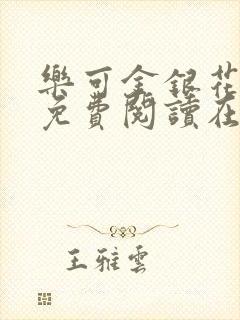 樂可金銀花
免費閱讀在
王雅雲